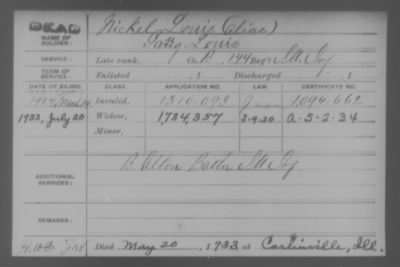 DEAD
NAME OF SOLDIER: Nickel, Louis (alias)
Gatzg. Louis
SERVICE: Late rank, Co. A, 144 Reg't Ill. Inf
TERM OF SERVICE: Enlisted , 1 Discharged , 1
DATE OF FILING. CLASS. APPLICATION NO. LAW. CERTIFICATE NO.
1904 March 14 Invalid, 1310.098 1094.662
1933, July 20 Widow, 1,734,357 3-9-20 a-5-2-34
Minor,
ADDITIONAL SERVICES: B. Alton Battn Ill. Inf
REMARKS:
Died May 20, 1933 at Carlinville, Ill.